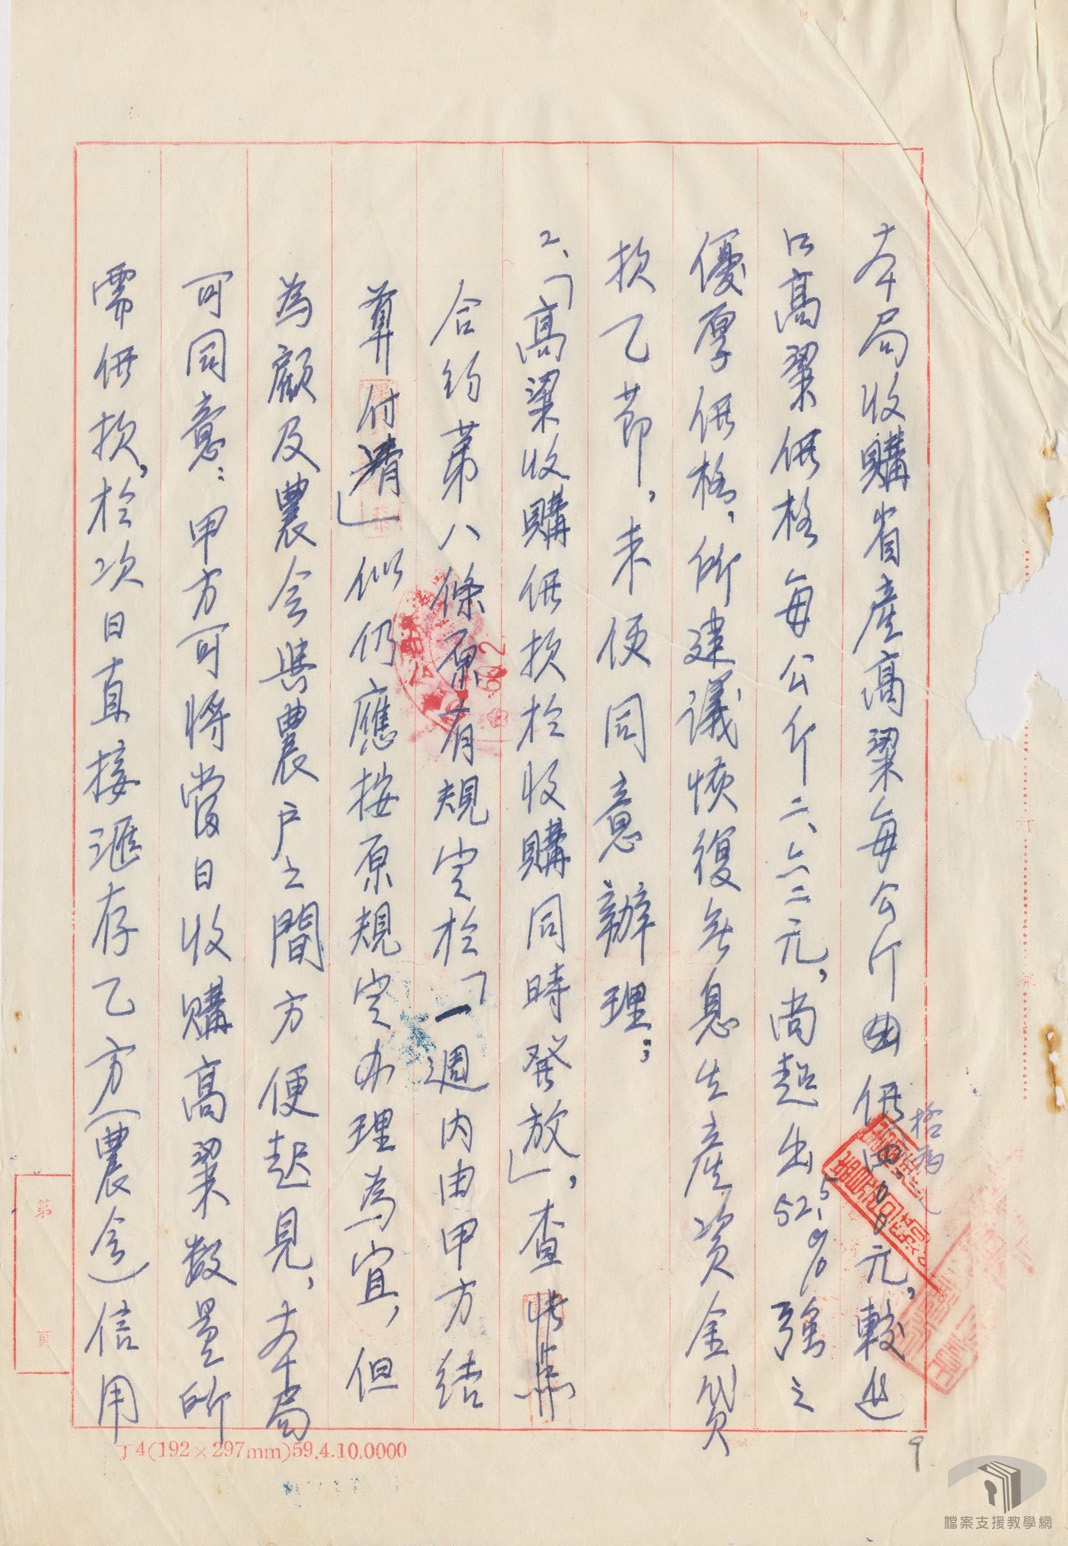 本局收購省產高粱每公斤価格為四.00元,較進
口高粱価格每公斤二、六二元,尚超出52.5%強之
優厚価格,所建議恢復無息生產資金貸
款乙節,未便同意辦理;
2、「高粱收購価款於收購同時發放」,查
合約第八條原有規定於「一週內由甲方結
算付清」似仍應按原規定办理為宜,但
為顧及農会與農户之間方便起見,本局
可同意:甲方可將當日收購高粱數量所
需価款,於次日直接滙存乙方(農会)信用
第
頁
丁4(192×297mm)59.4.10.0000
9
檔案支援教學網